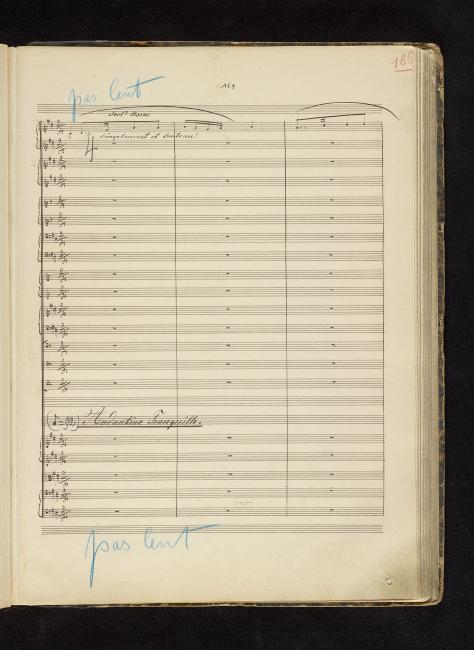 169
166
pas lent
Simplement et soutenu
(♪=92) Andantino Tranquillo.
pas lent